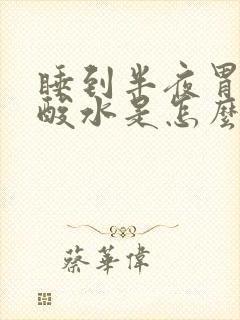 睡到半夜胃
酸水是怎麼
蔡華偉